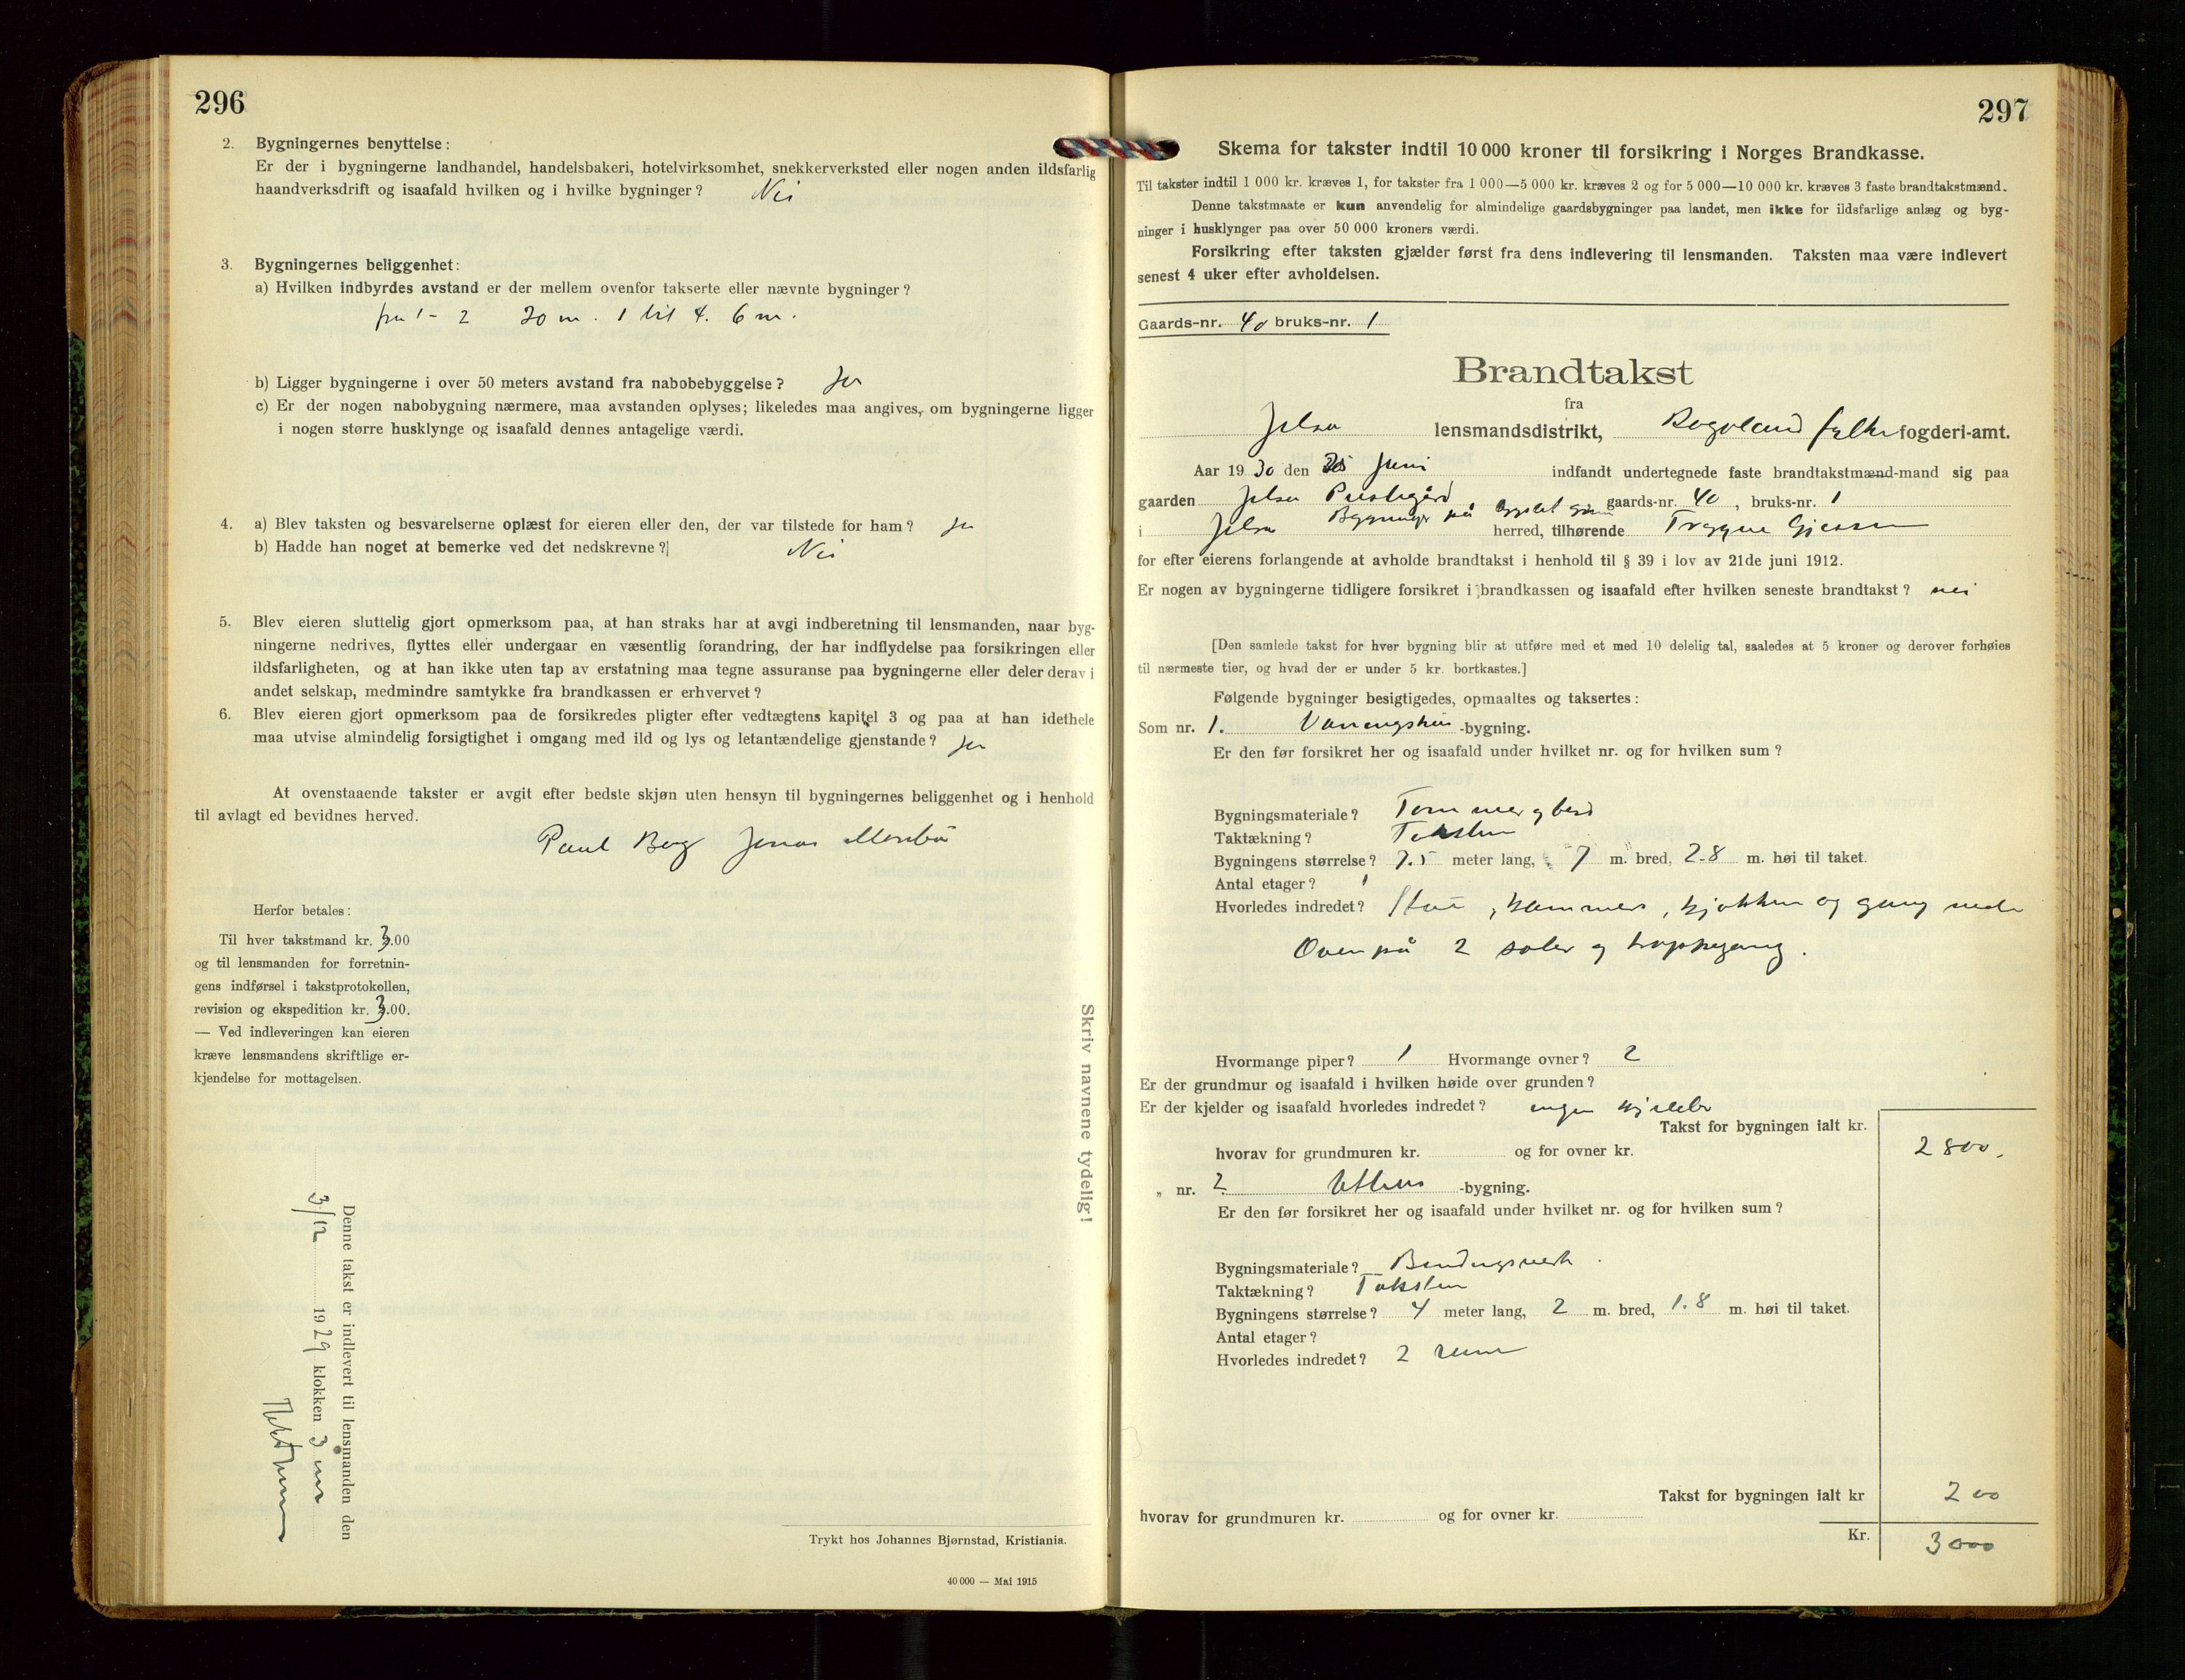 296
2. Bygningernes benyttelse:
Er der i bygningerne landhandel, handelsbakeri, hotelvirksomhet, snekkerverksted eller nogen anden ildsfarlig
haandverksdrift og isaafald hvilken og i hvilke bygninger? Nei
3. Bygningernes beliggenhet:
a) Hvilken indbyrdes avstand er der mellem ovenfor takserte eller nævnte bygninger?
fra 1 - 2 20 m. 1 til 4. 6 m.
b) Ligger bygningerne i over 50 meters avstand fra nabobebyggelse? Ja
c) Er der nogen nabobygning nærmere, maa avstanden oplyses; likeledes maa angives, om bygningerne ligger
i nogen større husklynge og isaafald dennes antagelige værdi.
4. a) Blev taksten og besvarelserne oplæst for eieren eller den, der var tilstede for ham? Ja
b) Hadde han noget at bemerke ved det nedskrevne? Nei
5. Blev eieren sluttelig gjort opmerksom paa, at han straks har at avgi indberetning til lensmanden, naar byg-
ningerne nedrives, flyttes eller undergaar en væsentlig forandring, der har indflydelse paa forsikringen eller
ildsfarligheten, og at han ikke uten tap av erstatning maa tegne assuranse paa bygningerne eller deler derav i
andet selskap, medmindre samtykke fra brandkassen er erhvervet?
6. Blev eieren gjort opmerksom paa de forsikredes pligter efter vedtægtens kapitel 3 og paa at han idethele
maa utvise almindelig forsigtighet i omgang med ild og lys og letantændelige gjenstande? Ja
At ovenstaaende takster er avgit efter bedste skjøn uten hensyn til bygningernes beliggenhet og i henhold
til avlagt ed bevidnes herved.
Paul Berg Jonas
Herfor betales:
Til hver takstmand kr. 3.00
og til lensmanden for forretnin-
gens indførsel i takstprotokollen,
revision og ekspedition kr. 3.00.
— Ved indleveringen kan eieren
kræve lensmandens skriftlige er-
kjendelse for mottagelsen.
Skriv navnene tydelig!
Denne takst er indlevert til lensmanden den
3/12 1929 klokken 3
Trykt hos Johannes Bjørnstad, Kristiania.
40 000 — Mai 1915
297
Skema for takster indtil 10 000 kroner til forsikring i Norges Brandkasse.
Til takster indtil 1 000 kr. kræves 1, for takster fra 1 000—5 000 kr. kræves 2 og for 5 000—10 000 kr. kræves 3 faste brandtakstmænd.
Denne takstmaate er kun anvendelig for almindelige gaardsbygninger paa landet, men ikke for ildsfarlige anlæg og byg-
ninger i husklynger paa over 50 000 kroners værdi.
Forsikring efter taksten gjælder først fra dens indlevering til lensmanden. Taksten maa være indlevert
senest 4 uker efter avholdelsen.
Gaards-nr. 40 bruks-nr. 1
Brandtakst
fra
Jelsa lensmandsdistrikt, Rogaland fylke fogderi-amt.
Aar 1930 den Juni indfandt undertegnede faste brandtakstmænd-mand sig paa
gaarden Jelsa Prestegård gaards-nr. 40, bruks-nr. 1
Bygninger på bygslet grunn
i Jelsa herred, tilhørende Trygve
for efter eierens forlangende at avholde brandtakst i henhold til § 39 i lov av 21de juni 1912.
Er nogen av bygningerne tidligere forsikret i brandkassen og isaafald efter hvilken seneste brandtakst? nei
[Den samlede takst for hver bygning blir at utføre med et med 10 delelig tal, saaledes at 5 kroner og derover forhøies
til nærmeste tier, og hvad der er under 5 kr. bortkastes.]
Følgende bygninger besigtigedes, opmaaltes og taksertes:
Som nr. 1. Vaaningshus -bygning.
Er den før forsikret her og isaafald under hvilket nr. og for hvilken sum?
Bygningsmateriale? Tømmer og bord
Taktækning? Taksten
Bygningens størrelse? 7.5 meter lang, 7 m. bred, 2.8 m. høi til taket.
Antal etager? 1
Hvorledes indredet? Stue, kammers, kjøkken og gang nede
Oven på 2 saler og trappegang.
Hvormange piper? 1 Hvormange ovner? 2
Er der grundmur og isaafald i hvilken høide over grunden?
Er der kjelder og isaafald hvorledes indredet? ingen kjelder
Takst for bygningen ialt kr. 2800.
hvorav for grundmuren kr. og for ovner kr.
„ nr. 2. Uthus -bygning.
Er den før forsikret her og isaafald under hvilket nr. og for hvilken sum?
Bygningsmateriale? Bindingsverk
Taktækning? Taksten
Bygningens størrelse? 4 meter lang, 2 m. bred, 1.8 m. høi til taket.
Antal etager?
Hvorledes indredet? 2 rum
Takst for bygningen ialt kr 200
hvorav for grundmuren kr. og for ovner kr.
Kr. 3000